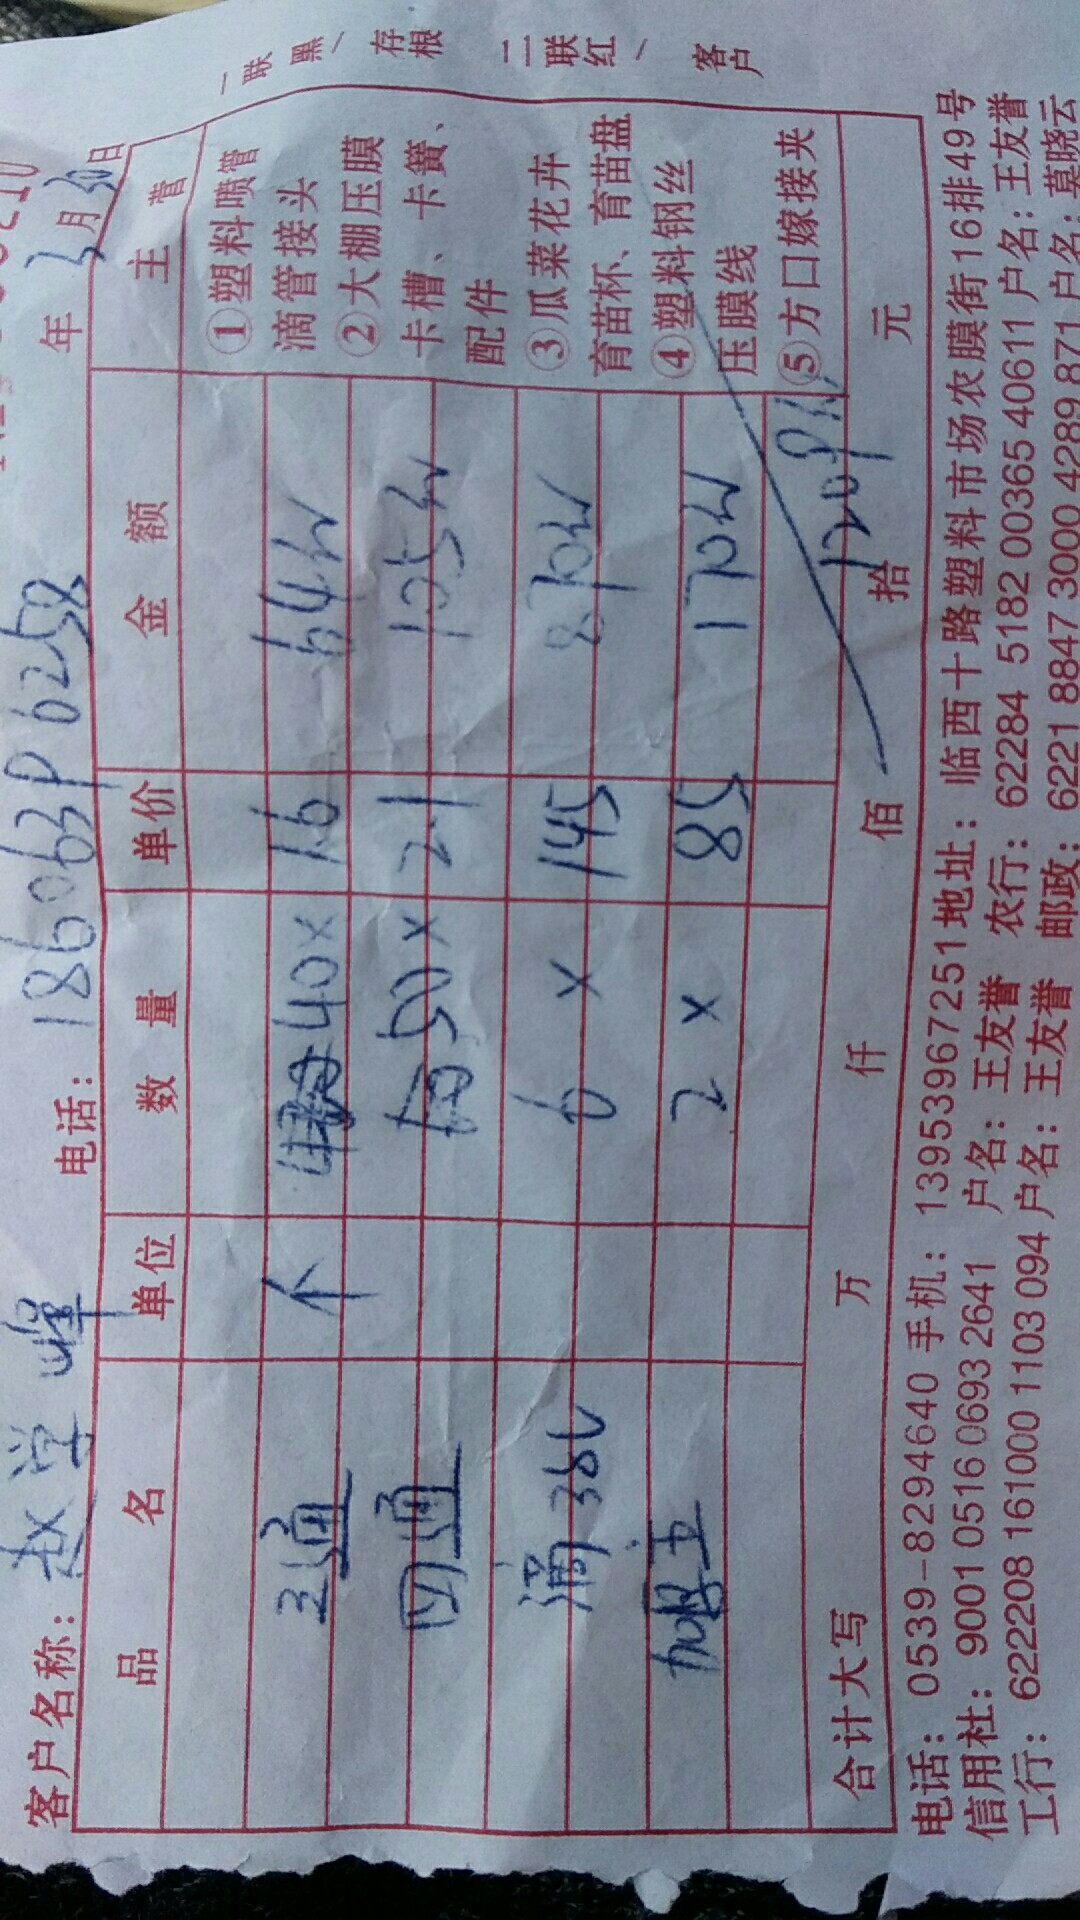 客户名称: 赵学峰 电话: 18606396258 年 3月30日
品名 单位 数量 单价 金额 主营
三通 个 40× 1.6 64元
四通 50× 2.1 105元
滴 380 6 × 145 870元
2 × 85 170元
1209元
合计大写 万 仟 佰 拾 元
①塑料喷管
滴管接头
②大棚压膜
卡槽、卡簧、
配件
③瓜菜花卉
育苗杯、育苗盘
④塑料钢丝
压膜线
⑤方口嫁接夹
一联黑、存根 二联红、客户
电话: 0539-8294640 手机: 13953967251 地址: 临西十路塑料市场农膜街16排49号
信用社: 9001 0516 0693 2641 户名: 王友誉 农行: 62284 5182 00365 40611 户名: 王友誉
工行: 622208 161000 1103 094 户名: 王友誉 邮政: 6221 8847 3000 4289 871 户名: 莫晓云